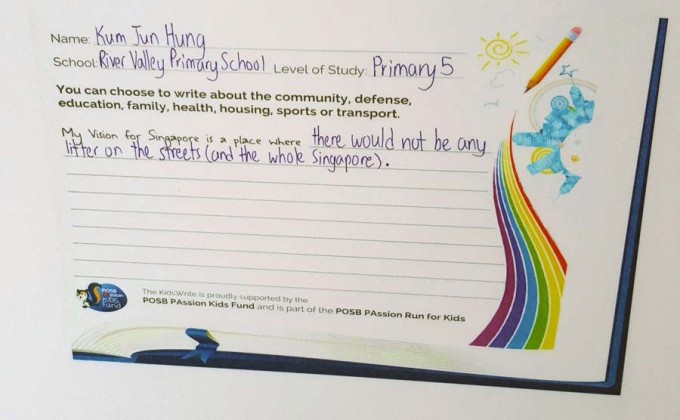 Name: Kum Jun Hung
School: River Valley Primary School Level of Study: Primary 5
You can choose to write about the community, defense,
education, family, health, housing, sports or transport.
My Vision for Singapore is a place where there would not be any
litter on the streets (and the whole Singapore).
POSB
PAssion
Kids
Fund
The KidsWrite is proudly supported by the
POSB PAssion Kids Fund and is part of the POSB PAssion Run for Kids